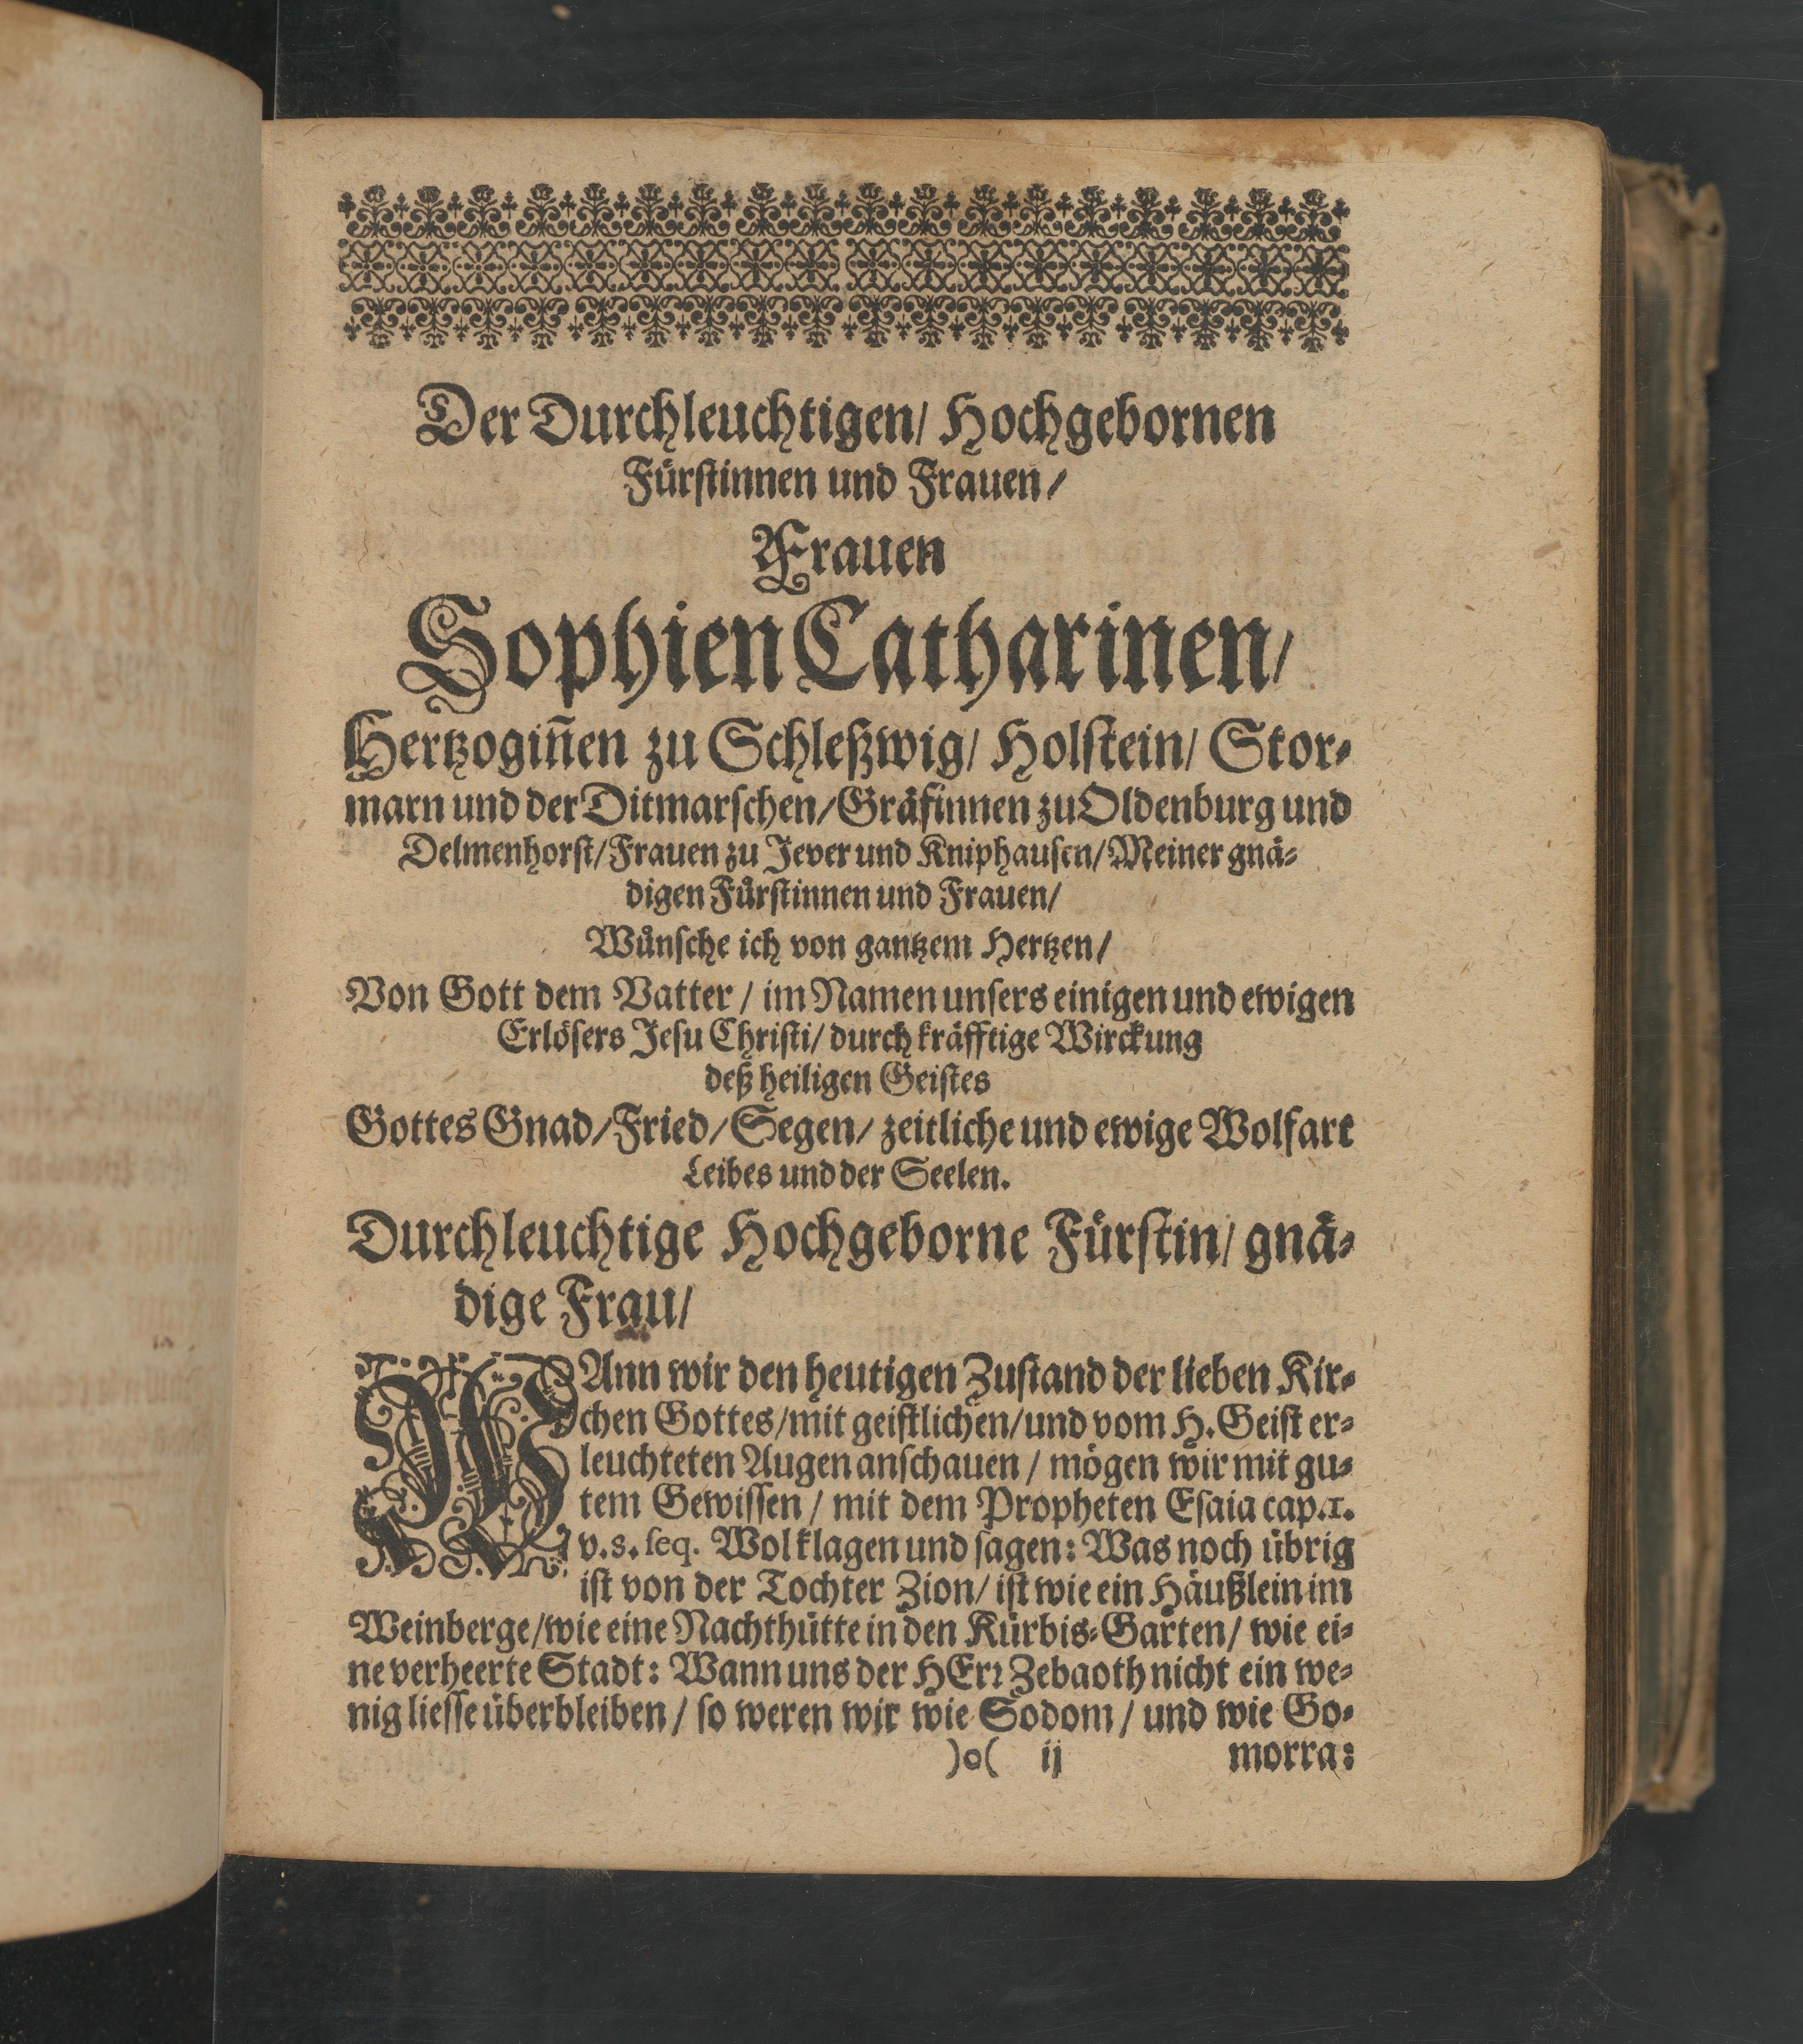 Der Durchleuchtigen/ Hochgebornen
Fürstinnen und Frauen/
Frauen
Sophien Catharinen/
Hertzogiñen zu Schleßwig/ Holstein/ Stor-
marn und der Ditmarschen/ Gräfinnen zu Oldenburg und
Delmenhorst/ Frauen zu Jever und Kniphausen/ Meiner gnä-
digen Fürstinnen und Frauen/
Wünsche ich von gantzem Hertzen/
Von Gott dem Vatter/ im Namen unsers einigen und ewigen
Erlösers Jesu Christi/ durch kräfftige Wirckung
deß heiligen Geistes
Gottes Gnad/ Fried/ Segen/ zeitliche und ewige Wolfart
Leibes und der Seelen.
Durchleuchtige Hochgeborne Fürstin/ gnä-
dige Frau/
WAnn wir den heutigen Zustand der lieben Kir-
chen Gottes/ mit geistlichen/ und vom H. Geist er-
leuchteten Augen anschauen/ mögen wir mit gu-
tem Gewissen/ mit dem Propheten Esaia cap.1.
v.8. seq. Wol klagen und sagen: Was noch übrig
ist von der Tochter Zion/ ist wie ein Häußlein im
Weinberge/ wie eine Nachthütte in den Kürbis-Garten/ wie ei-
ne verheerte Stadt: Wann uns der HErr Zebaoth nicht ein we-
nig liesse überbleiben/ so weren wir wie Sodom/ und wie Go-
)o( ij morra: